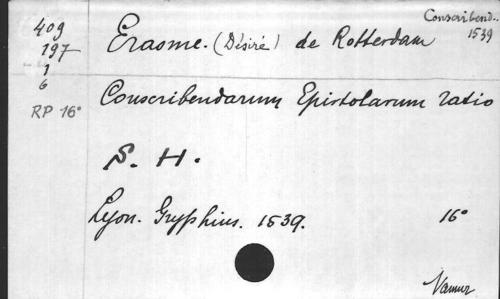 Conscribend..
1539
409
197
1
6
RP 16°
Erasme. (Désiré) de Rotterdam
Conscribendarum Epistolarum ratio
S. H.
Lyon. Gryphius. 1539. 16°
Namur